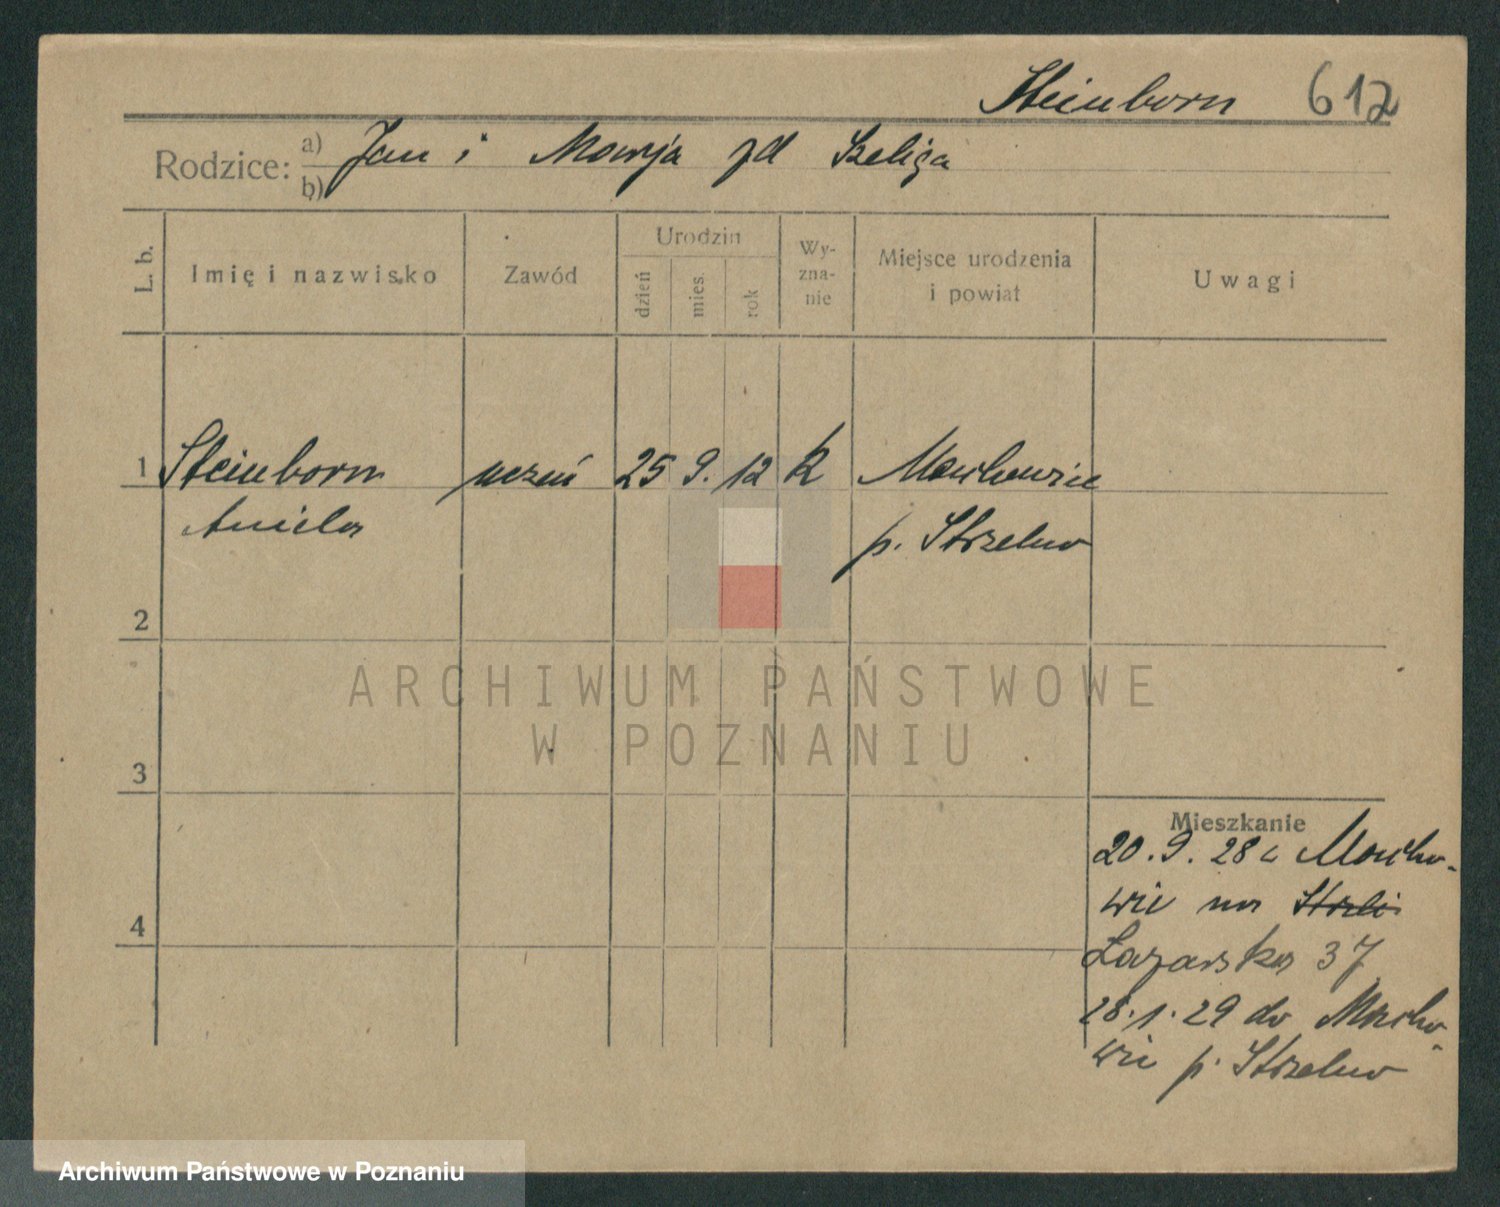 Steinborn 612
Rodzice: a) Jan i Marja zd Szeliga
b)
L. b. Imię i nazwisko Zawód Urodzin dzień mies. rok Wy-zna-nie Miejsce urodzenia i powiat Uwagi
1 Steinborn uczeń 25 9. 12 k Markowice
Aniela p. Strzelno
2
ARCHIWUM PAŃSTWOWE
W POZNANIU
3
Mieszkanie
20.9.28 z Marko-
wic na Strzel
4
Łazarska 37
28.1.29 do Marko-
wic p. Strzelno
Archiwum Państwowe w Poznaniu